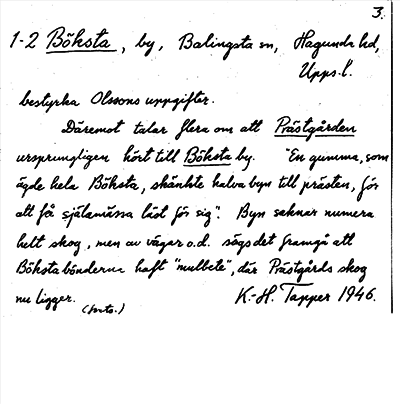 3.
1-2 Böksta, by, Balingsta sn, Hagunda hd,
Upps. l.
bestyrka Olssons uppgifter.
Däremot talar flera om att Prästgården
ursprungligen hört till Böksta by. "En gumma, som
ägde hela Böksta, skänkte halva byn till prästen, för
att få själamässa läst för sig". Byn saknar numera
helt skog, men av vägar o.d. sägs det framgå att
Bökstabönderna haft "mulbete", där Prästgårds skog
nu ligger.
(forts.)
K.-H. Tapper 1946.